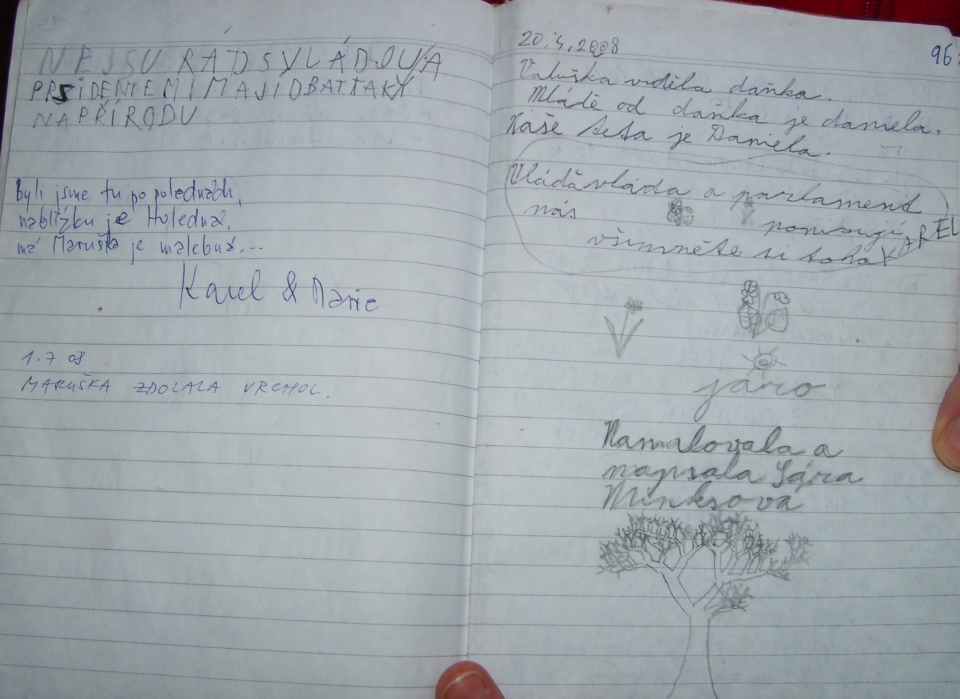 NEJSU RÁD SVLÁDOUA
PRSIDENTEM I MAJI DBAT TAKY
NA PŘÍRODU
Byli jsme tu po polednách,
nablízku je Holedná,
má Maruška je malebná...
Karel & Marie
1.7.08
MARUŠKA ZDOLALA VRCHOL.
20.4.2008
96
Valuška viděla daňka.
Mládě od daňka je daniela.
Naše teta je Daniela.
Vládă vláda a parlament
nás
pomozují
všimněte si toho KAREL
járo
Namalovala a
napsala Sára
Minksová